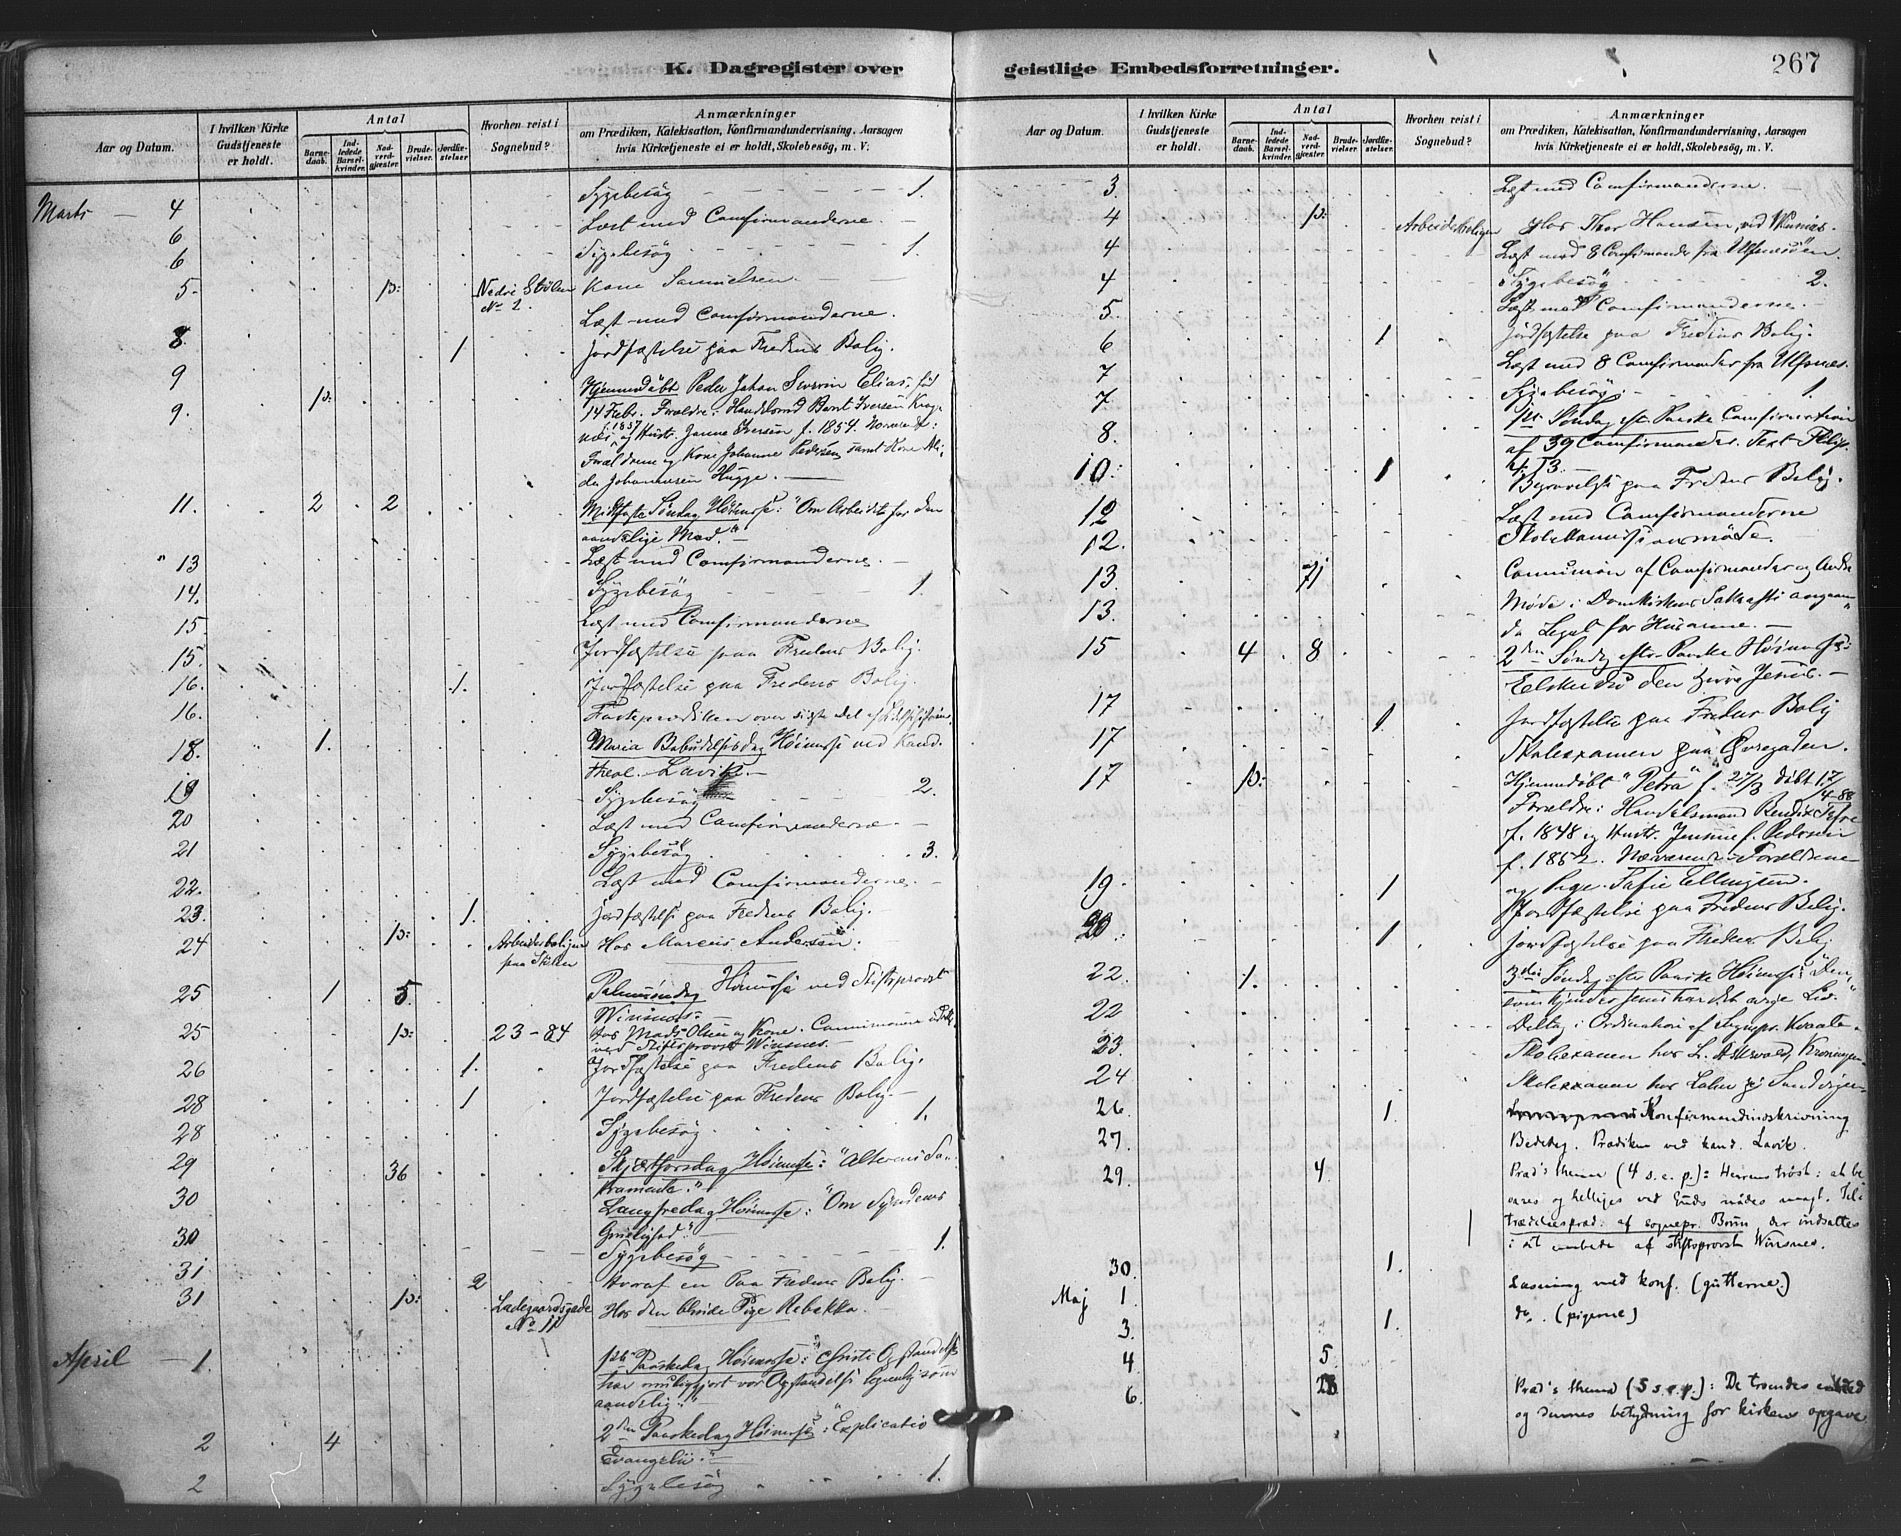 267
K. Dagregister over geistlige Embedsforretninger.
Aar og Datum.
I hvilken Kirke Gudstjeneste er holdt.
Antal
Barnedaab.
Indledede Barselkvinder.
Nadverdgjester.
Brudevielser.
Jordfæstelser.
Hvorhen reist i Sognebud?
Anmærkninger
om Prædiken, Katekisation, Konfirmandundervisning, Aarsagen
hvis Kirketjeneste ei er holdt, Skolebesøg, m. V.
Marts 4 Sygebesøg 1.
6 Læst med Comfirmanderne.
6 Sygebesøg 1.
5. p: Nedre Stølen No 2. Kone Samuelsen
8. Læst med Comfirmanderne.
9 1 Jordfæstelse paa Fredens Bolig.
9. p: Hjemmedøbt Peder Johan Severin Elias, fød
14 Febr. Forældre: Handelsmd Bernt Iversen
f. 1857 og Hustr. Janne Iversen f. 1854.
Forældrene og Kone Johanne Pedersen samt Kone
Johannesen Hugge.
11. 2 2 Midfaste Søndag Høimesse: "Om Arbeidet for den
aandelige Mad."
" 13 Læst med Comfirmanderne.
14. Sygebesøg 1.
15. Læst med Comfirmanderne
15. Jordfæstelse paa Fredens Bolig.
16. 1. Jordfæstelse paa Fredens Bolig.
16. Fasteprædiken over
18. 1. Maria Bebudelsesdag Høimesse ved Kand.
theol. Lavik.
19 Sygebesøg 2.
20 Læst med Comfirmanderne.
21 Sygebesøg 3.
22. Læst med Comfirmanderne.
23. 1. Jordfæstelse paa Fredens Bolig.
24 p: Arbeiderboligen paa Stølen Hos Marcus Andersen.
25 1 5 Palmesøndag Høimesse ved Stiftsprovst
Winsnes.
25 p: 23-84 Hos Mads Olsen og Kone.
ved Stiftsprovst Winsnes.
26 1. Jordfæstelse paa Fredens Bolig.
28 1 Jordfæstelse paa Fredens Bolig.
28 Sygebesøg. 1.
29 36 Skjærtorsdag Høimesse: "Alterens Sakramente."
30 Langfredag Høimesse: "Om Syndens
30 Sygebesøg 1.
31 2 Hvoraf en Paa Fredens Bolig.
31 p: Ladegaardsgade No 11 Hos den blinde Pige Rebekka.
April 1. 1ste Paaskedag Høimesse: "Christi Opstandelse
har muliggjort vor Opstandelse legemlig som
aandelig."
2 4 2den Paaskedag Høimesse: "Explicatio
Evangelii."
2 Sygebesøg 1.
Aar og Datum.
I hvilken Kirke Gudstjeneste er holdt.
Antal
Barnedaab.
Indledede Barselkvinder.
Nadverdgjester.
Brudevielser.
Jordfæstelser.
Hvorhen reist i Sognebud?
Anmærkninger
om Prædiken, Katekisation, Konfirmandundervisning, Aarsagen
hvis Kirketjeneste ei er holdt, Skolebesøg, m. V.
3 Læst med Comfirmanderne.
4 p: Arbeiderboligen Hos Thor Hansen, ved
4 Læst med 8 Comfirmander fra Ulfsnesøen.
4 Sygebesøg 2.
5. Læst med Comfirmanderne.
6 1 Jordfæstelse paa Fredens Bolig.
7 Læst med 8 Comfirmander fra Ulfsnes.
7. Sygebesøg. 1.
8. 1ste Søndag efter Paaske Comfirmation
af 39 Comfirmander. Text
4. 13.
10: 1 Begravelse paa Fredens Bolig.
12 Læst med Comfirmanderne
12. Skolekommissionsmøde.
13. 71 Communion af Comfirmander og Andre
13. Møde i Domkirkens Sakristi angaaende
Legat for Husarme.
15 4 8 2den Søndag efter Paaske Høimesse:
Elsker du den Herre Jesus.
17 1 Jordfæstelse paa Fredens Bolig
17 Skolexamen paa Øvregaden.
17 p: Hjemmedøbt "Petra" f. 27/3 døbt 17/4-88
Forældre: Handelsmand Bendix
f. 1848 og Hustr. Jensine f. Pedersen
f. 1852. Nærværende Forældrene
og Pige Sofie Ellingsen.
19 1 Jordfæstelse paa Fredens Bolig.
20: 1 Jordfæstelse paa Fredens Bolig
22. 1. 3die Søndag efter Paaske Høimesse: "Den
som kjender Jesus har det evige Liv."
22 Deltog i Ordination af Sognepr. Kvaale.
23. Skolexamen hos L. Askevold, Krohnengen.
24 Skolexamen hos Laber paa Sandviken
26. 1 Konfirmandindskrivning
27. Bededag. Prædiken ved kand. Lavik.
29. 4 Præd's thema (4 s. e. p.): Herrens trøst: at be-
vares og helliges ved Guds nådes magt. Til-
trædelsespræd. af sognepr. Brun, der indsattes
i sit embede af stiftsprovst Winsnes.
30. 1. Læsning ved konf. (gutterne)
Maj 1 do. (pigerne)
3. 1
4 5
6 Præd's thema (5 s. e. p.): De troendes enhed
og dennes betydning for kirkens opgave